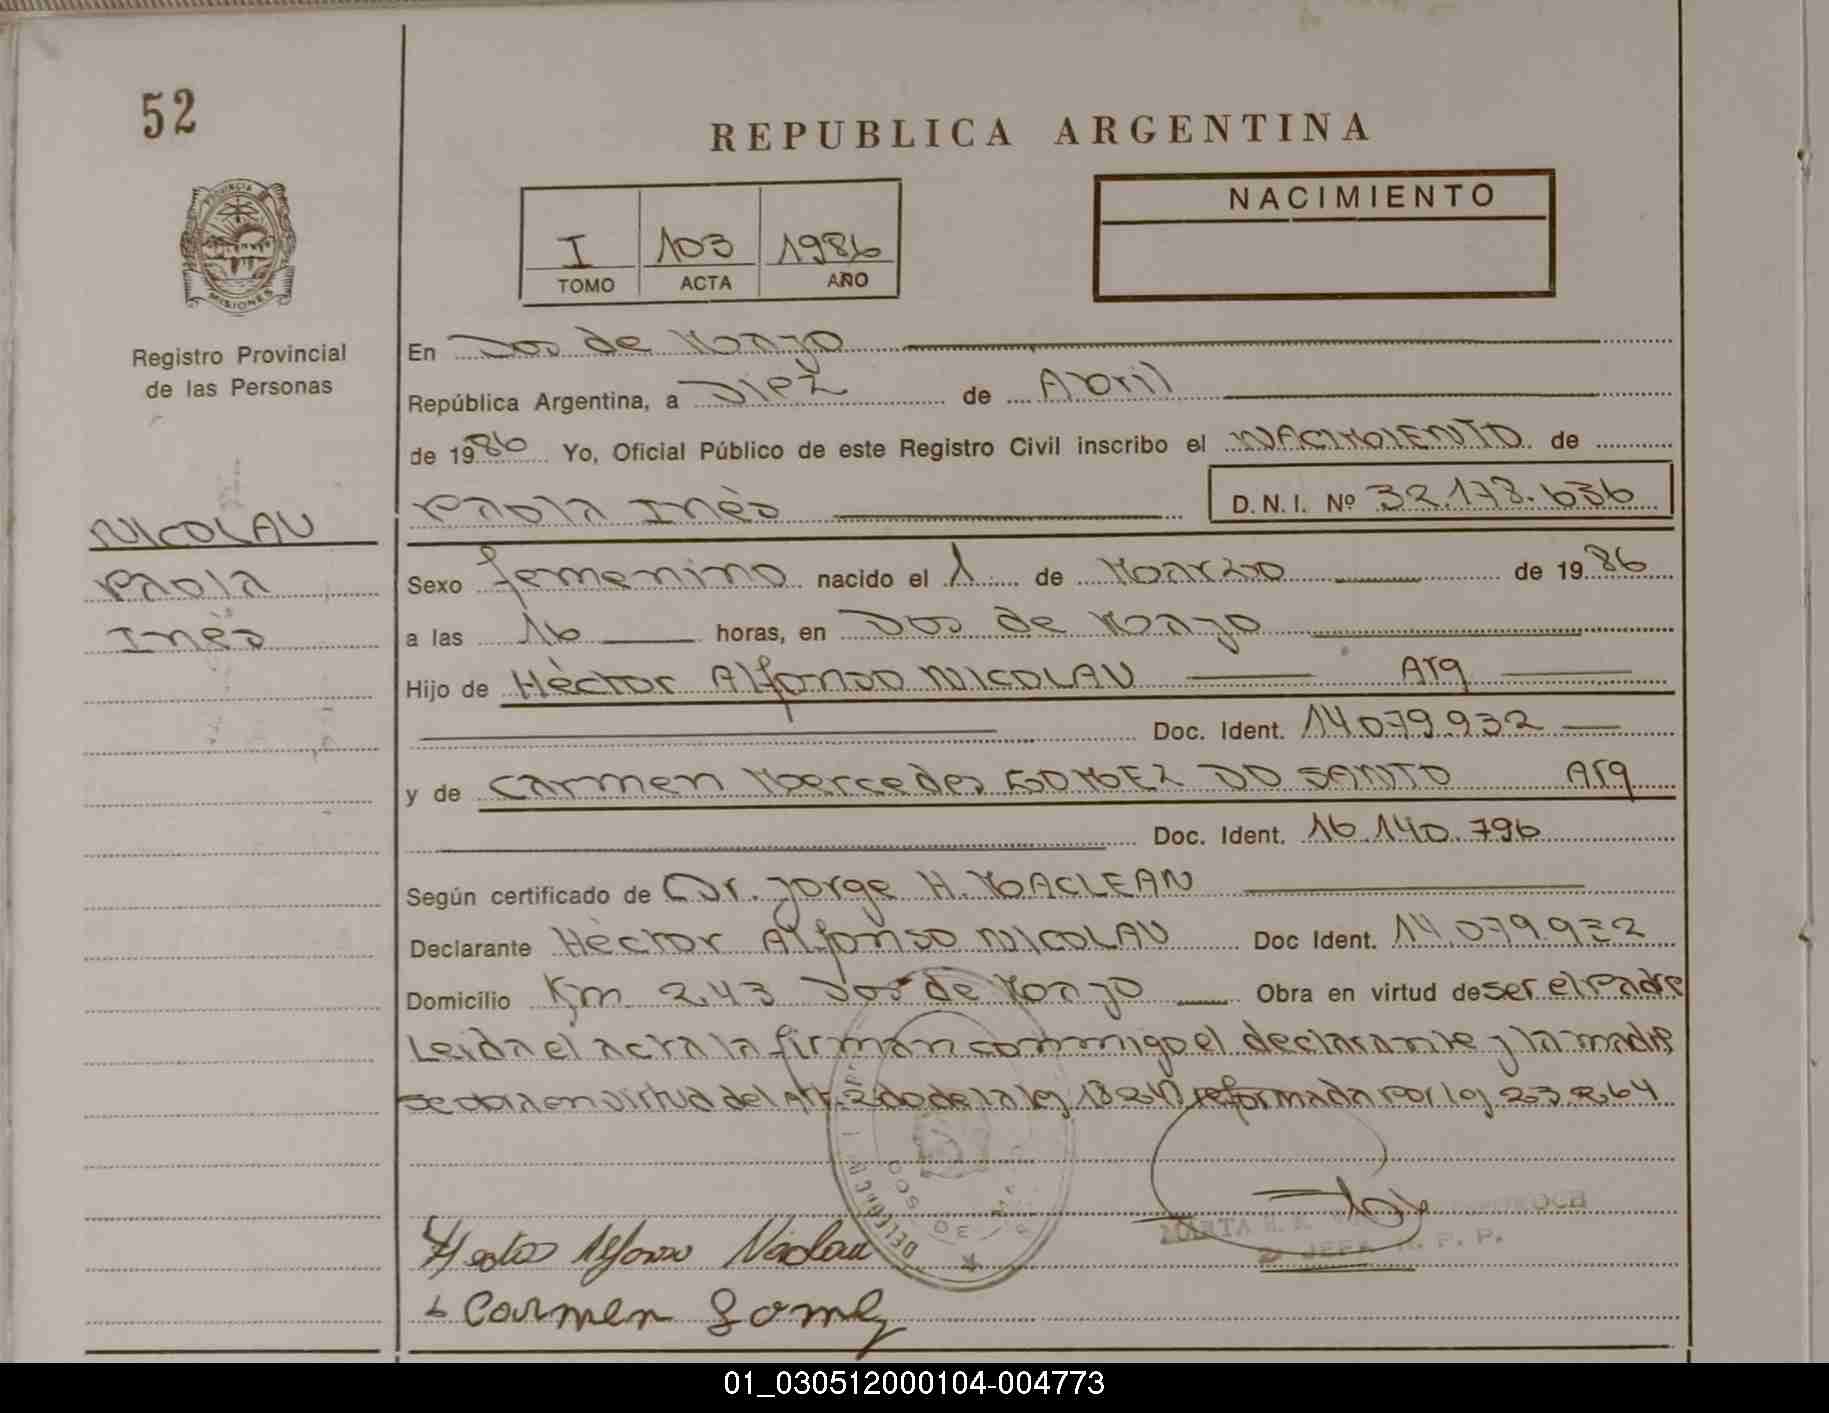 52
REPUBLICA ARGENTINA
PROVINCIA
MISIONES
NACIMIENTO
I 103 1986
TOMO ACTA AÑO
Registro Provincial
de las Personas
En Dos de Mayo
República Argentina, a Diez de Abril
de 1986 Yo, Oficial Público de este Registro Civil inscribo el NACIMIENTO de
Paola Inès D.N.I. Nº 32.178.636
NICOLAU
Paola
Inès
Sexo femenino nacido el 1 de Marzo de 1986
a las 16 horas, en Dos de Mayo
Hijo de Hèctor Alfonso NICOLAU Arg
Doc. Ident. 14.079.932
y de Carmen Mercedes GOMEZ DO SANTO Arg
Doc. Ident. 16.140.796
Según certificado de Dr. Jorge H. MACLEAN
Declarante Hèctor Alfonso NICOLAU Doc Ident. 14.079.932
Domicilio Km 243 Dos de Mayo Obra en virtud de ser el Padre
Leida el acta la firman conmigo el declarante y la madre
en virtud del Art. 2do de la ley reformada por ley 23.264
Hector Alfonso Nicolau
MARTA
JEFA R. P. P.
Carmen Gomez
01_030512000104-004773